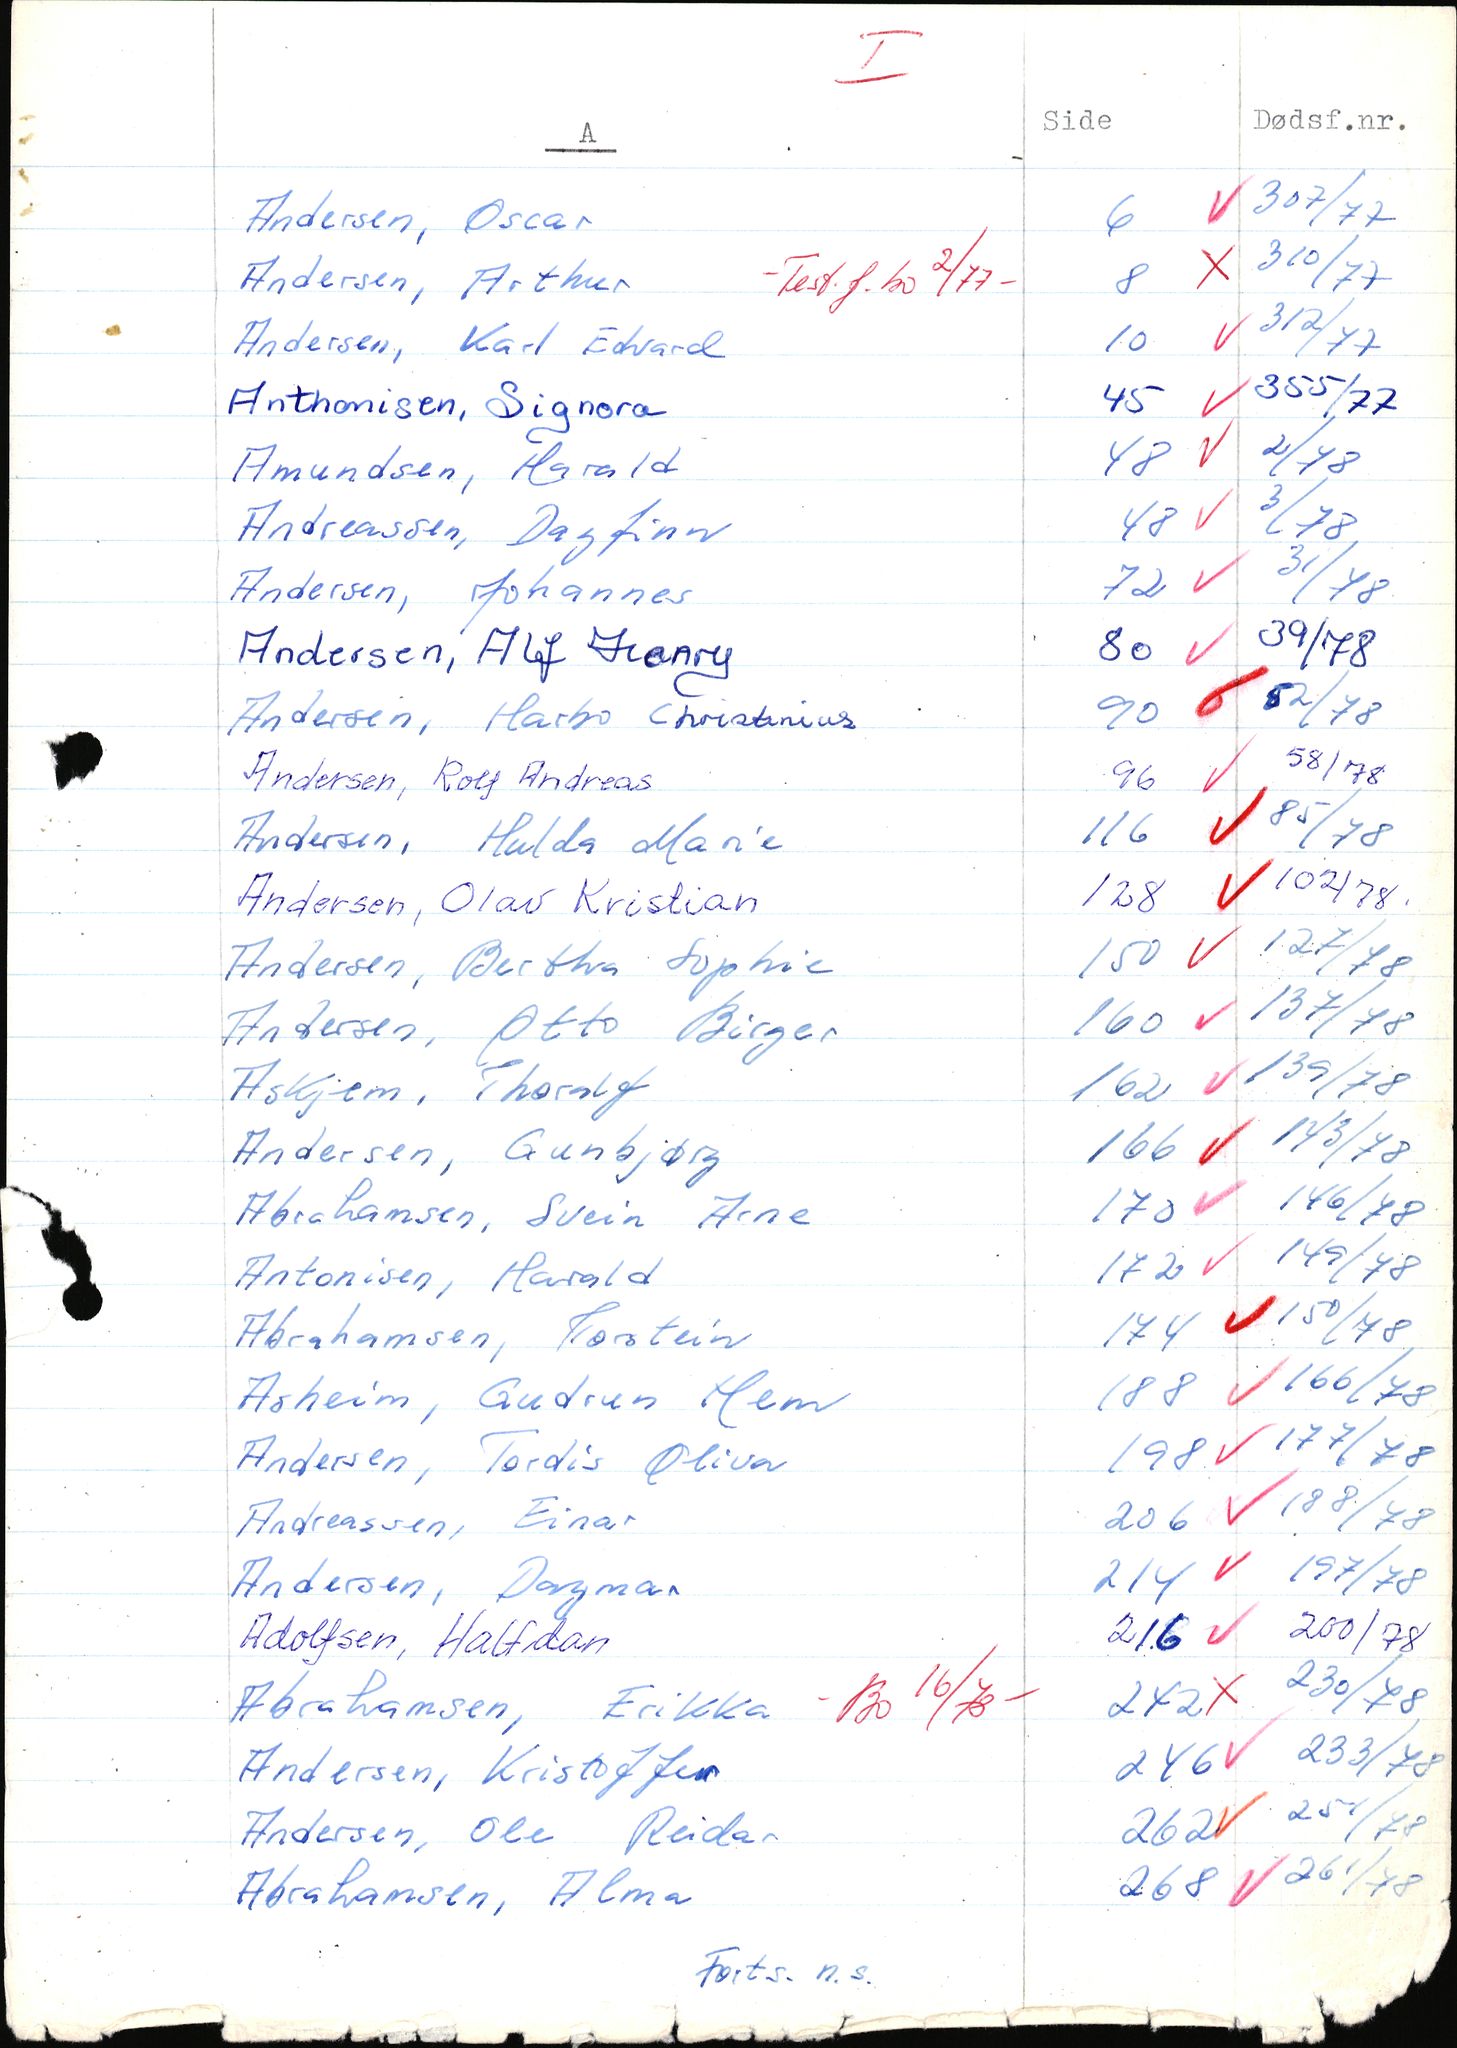 I
A Side Dødsf.nr.
Andersen, Oscar 6 ✓ 307/77
Andersen, Arthur -Test.f. bo 2/77- 8 X 310/77
Andersen, Karl Edvard 10 ✓ 312/77
Anthonisen, Signora 45 ✓ 355/77
Amundsen, Harald 48 ✓ 2/78
Andreassen, Dagfinn 48 ✓ 3/78
Andersen, Johannes 72 ✓ 31/78
Andersen, Alf Henry 80 ✓ 39/78
Andersen, Harbo Christinius 90 52/78
Andersen, Rolf Andreas 96 ✓ 58/78
Andersen, Hulda Marie 116 ✓ 85/78
Andersen, Olav Kristian 128 ✓ 102/78.
Andersen, Bertha Sophie 150 ✓ 127/78
Andersen, Otto Birger 160 ✓ 137/78
Askjem, Thoralf 162 ✓ 139/78
Andersen, Gunbjørg 166 ✓ 143/78
Abrahamsen, Svein Arne 170 ✓ 146/78
Antonisen, Harald 172 ✓ 149/78
Abrahamsen, Torstein 174 ✓ 150/78
Asheim, Gudrun Hem 188 ✓ 166/78
Andersen, Tordis Oliva 198 ✓ 177/78
Andreassen, Einar 206 ✓ 188/78
Andersen, Dagmar 214 ✓ 197/78
Adolfsen, Halfdan 216 ✓ 200/78
Abrahamsen, Erikka - Bo 16/78 - 242 X 230/78
Andersen, Kristoffer 246 ✓ 233/78
Andersen, Ole Reidar 262 ✓ 251/78
Abrahamsen, Alma 268 ✓ 261/78
Forts. n.s.